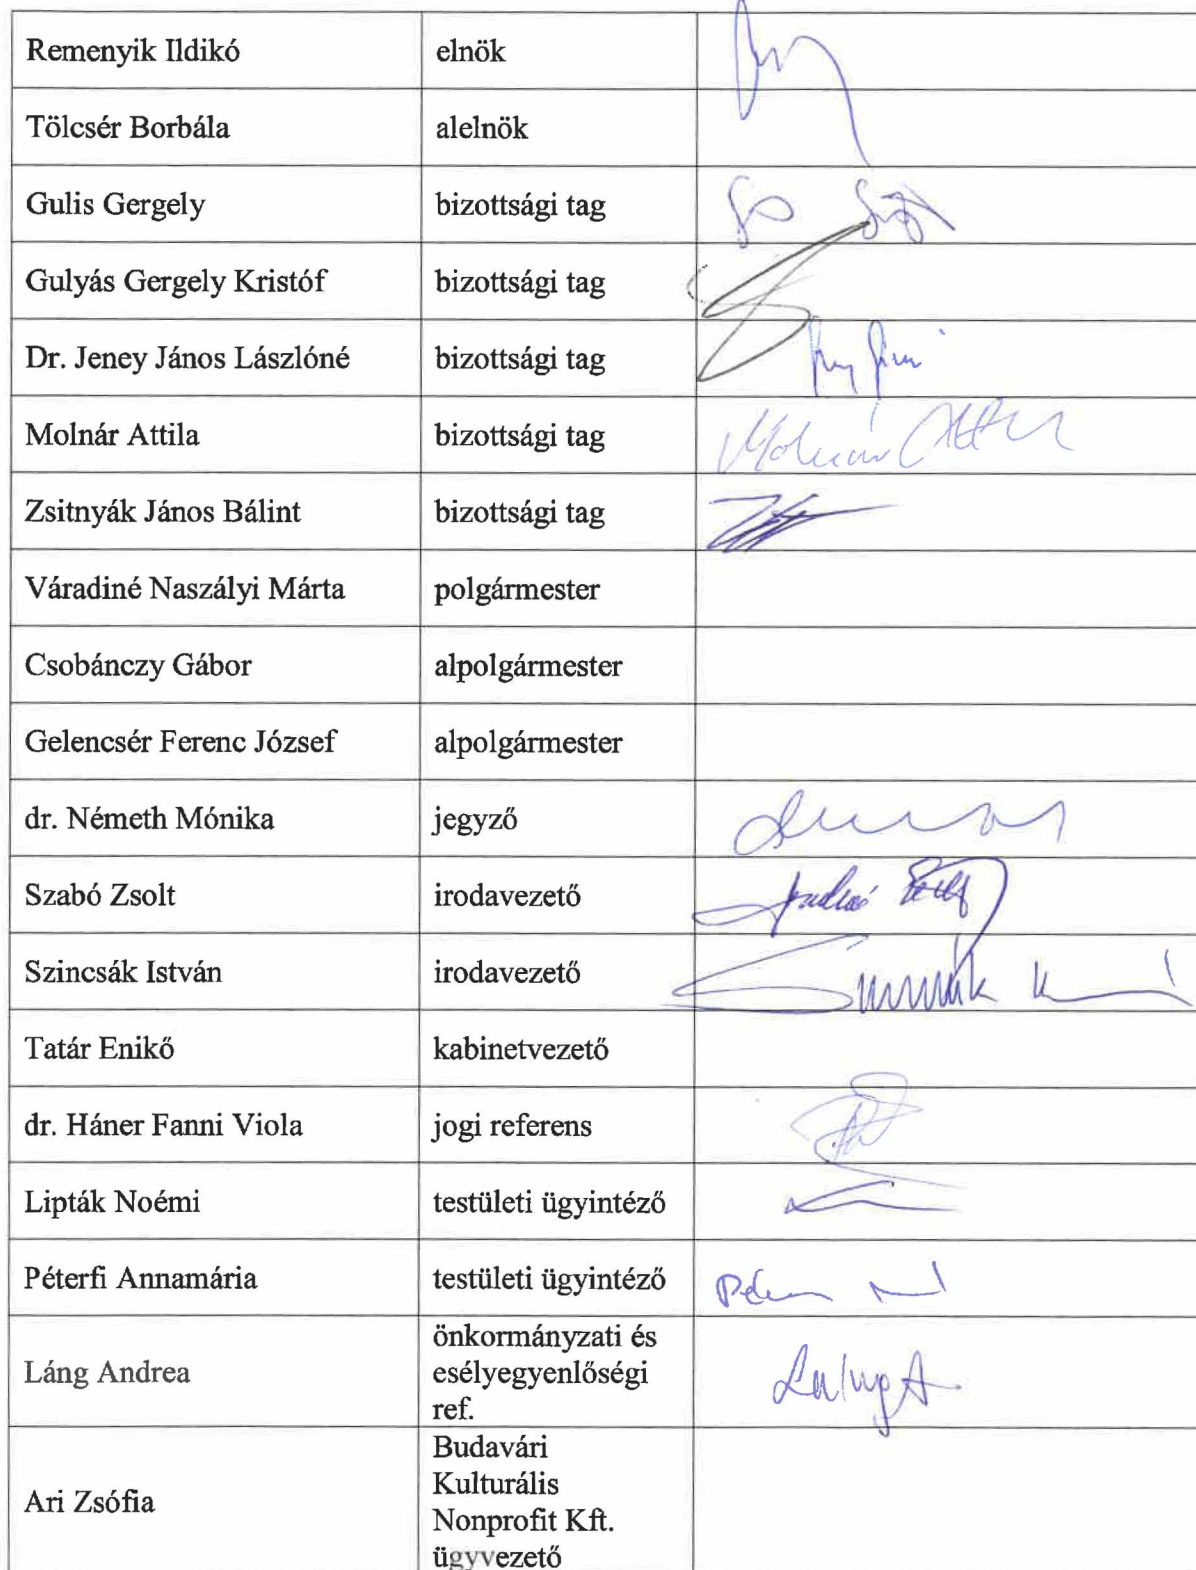 Remenyik Ildikó elnök
Tölcsér Borbála alelnök
Gulis Gergely bizottsági tag
Gulyás Gergely Kristóf bizottsági tag
Dr. Jeney János Lászlóné bizottsági tag
Molnár Attila bizottsági tag Molnár Attila
Zsitnyák János Bálint bizottsági tag
Váradiné Naszályi Márta polgármester
Csobánczy Gábor alpolgármester
Gelencsér Ferenc József alpolgármester
dr. Németh Mónika jegyző
Szabó Zsolt irodavezető
Szincsák István irodavezető
Tatár Enikő kabinetvezető
dr. Háner Fanni Viola jogi referens
Lipták Noémi testületi ügyintéző
Péterfi Annamária testületi ügyintéző
Láng Andrea
önkormányzati és
esélyegyenlőségi
ref.
Ari Zsófia
Budavári
Kulturális
Nonprofit Kft.
ügyvezető